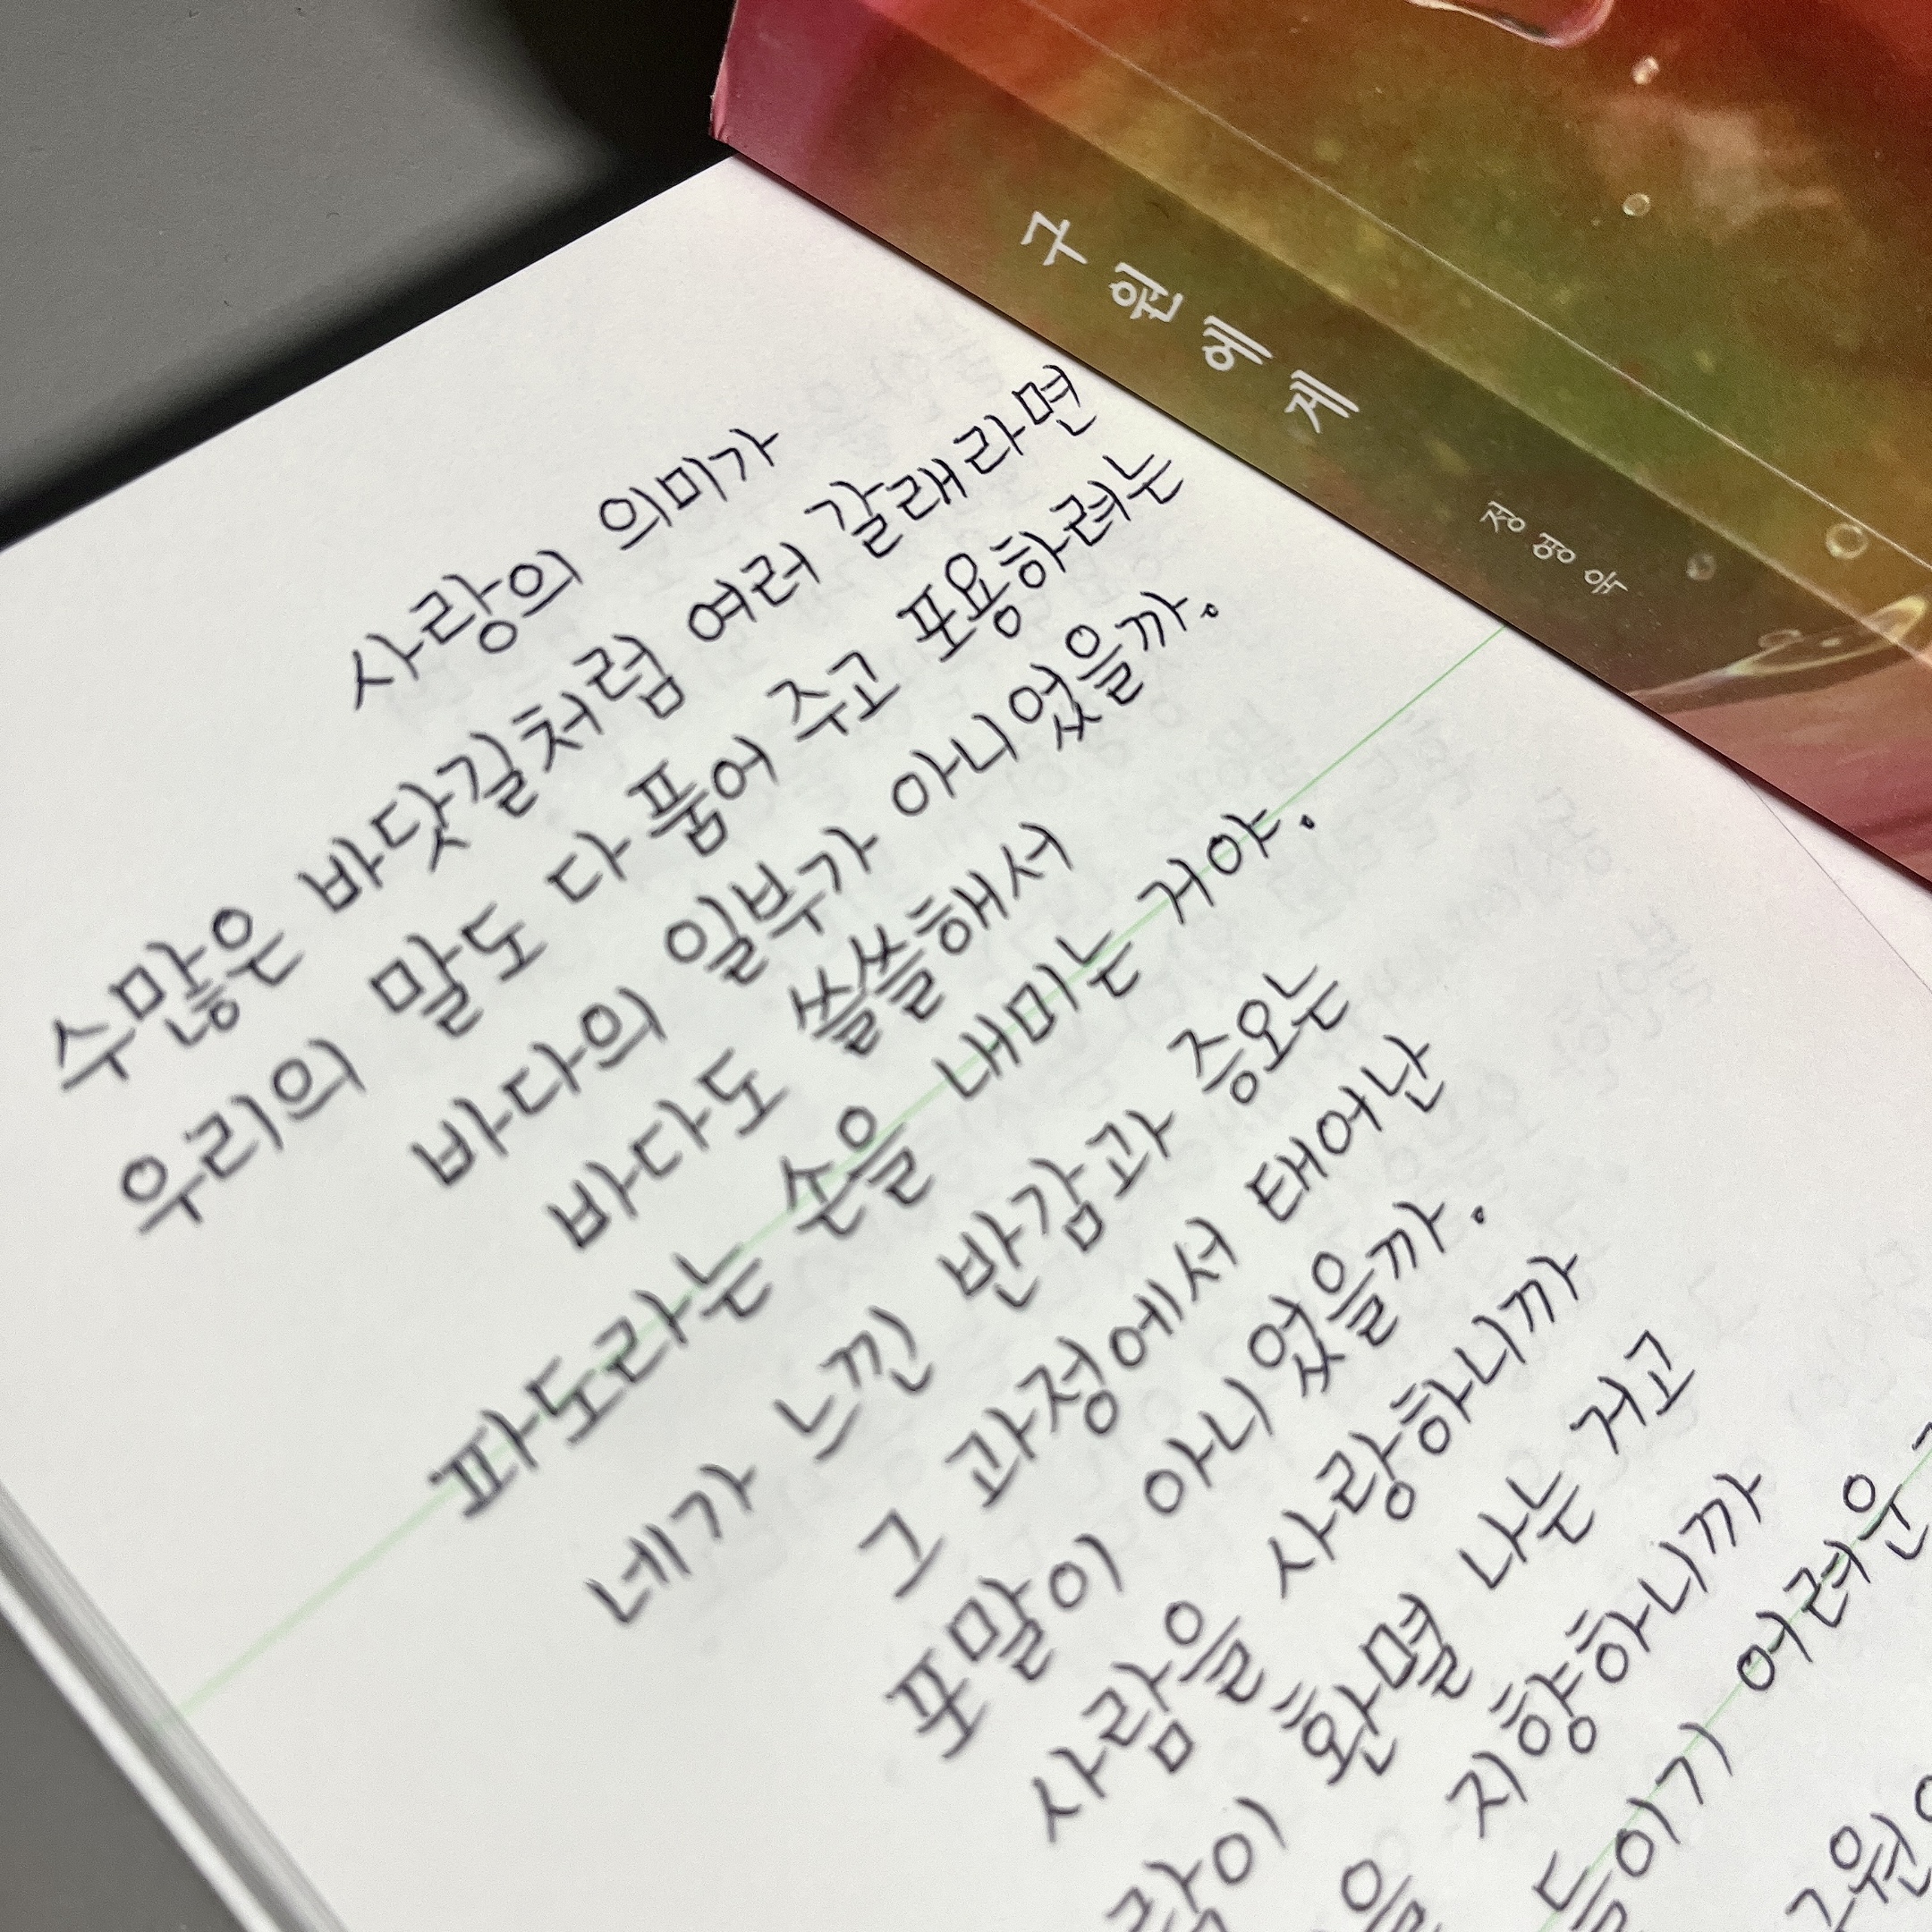 구원에게
정영욱
사랑의 의미가
수많은 바닷길처럼 여러 갈래라면
우리의 말도 다 품어 주고 포용하려는
바다의 일부가 아니었을까.
바다도 쓸쓸해서
파도라는 손을 내미는 거야.
네가 느낀 반감과 증오는
그 과정에서 태어난
포말이 아니었을까.
사람을 사랑하니까
환멸 나는 거고
지향하니까
어려운